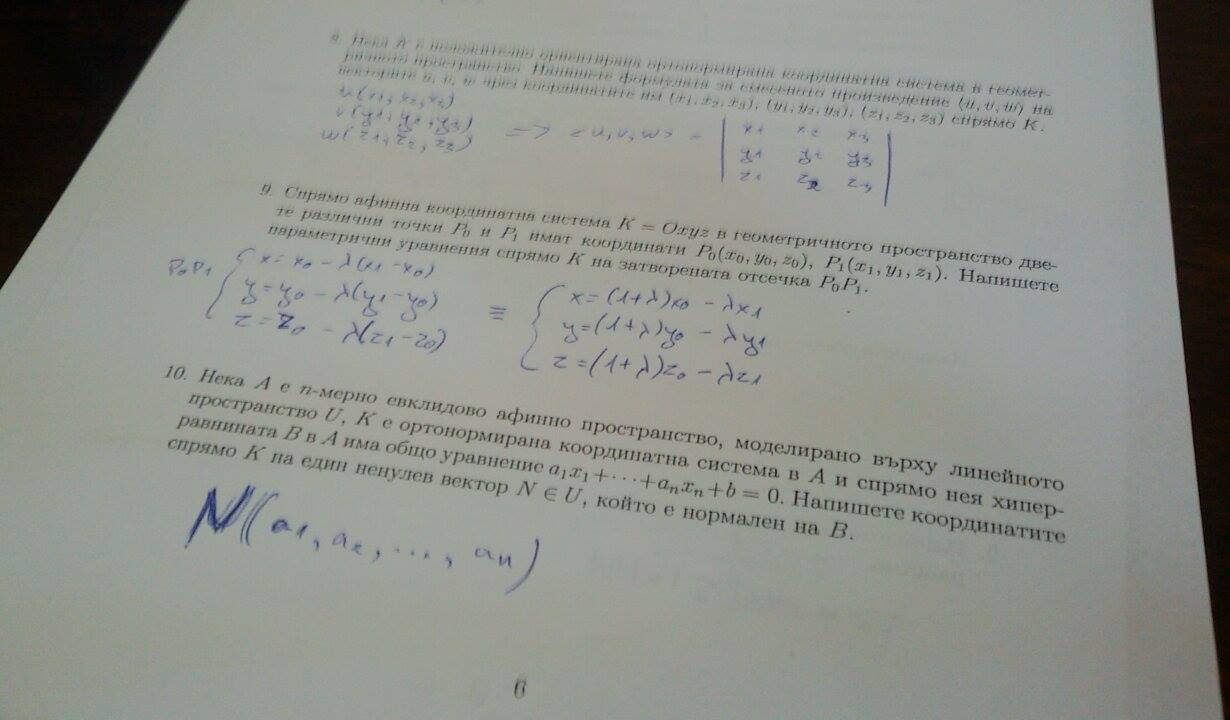 8. Нека K е положително ориентирана ортонормирана координатна система в геомет-
ричното пространство. Напишете формулата за смесеното произведение ⟨u, v, w⟩ на
векторите u, v, w чрез координатите им (x₁, x₂, x₃), (y₁, y₂, y₃), (z₁, z₂, z₃) спрямо K.
u(x1, x2, x3)
v(y1, y2, y3)
w(z1, z2, z3) => <u,v,w> = | x1 x2 x3 |
| y1 y2 y3 |
| z1 z2 z3 |
9. Спрямо афинна координатна система K = Oxyz в геометричното пространство две-
те различни точки P₀ и P₁ имат координати P₀(x₀, y₀, z₀), P₁(x₁, y₁, z₁). Напишете
параметрични уравнения спрямо K на затворената отсечка P₀P₁.
P₀P₁ { x = x₀ − λ(x1 − x₀) ≡ { x = (1+λ)x₀ − λx1
y = y₀ − λ(y1 − y₀) y = (1+λ)y₀ − λy1
z = z₀ − λ(z1 − z₀) z = (1+λ)z₀ − λz1
10. Нека A е n-мерно евклидово афинно пространство, моделирано върху линейното
пространство U, K е ортонормирана координатна система в A и спрямо нея хипер-
равнината B в A има общо уравнение a₁x₁+⋯+aₙxₙ+b = 0. Напишете координатите
спрямо K на един ненулев вектор N ∈ U, който е нормален на B.
N(a1, a2, ..., an)
6